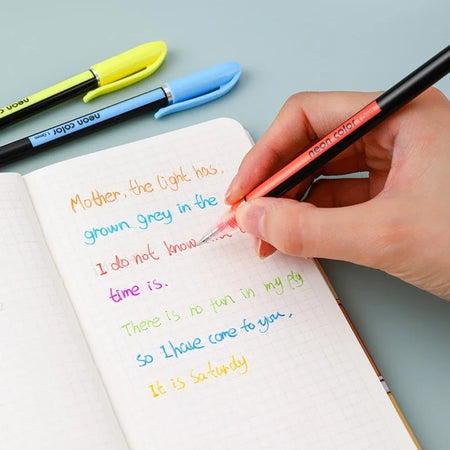 neon color
neon color
neon color
Mother, the light has.
grown grey in the
I do not know
time is.
There is no fun in my ply
so I have come to you,
It is Saturdy